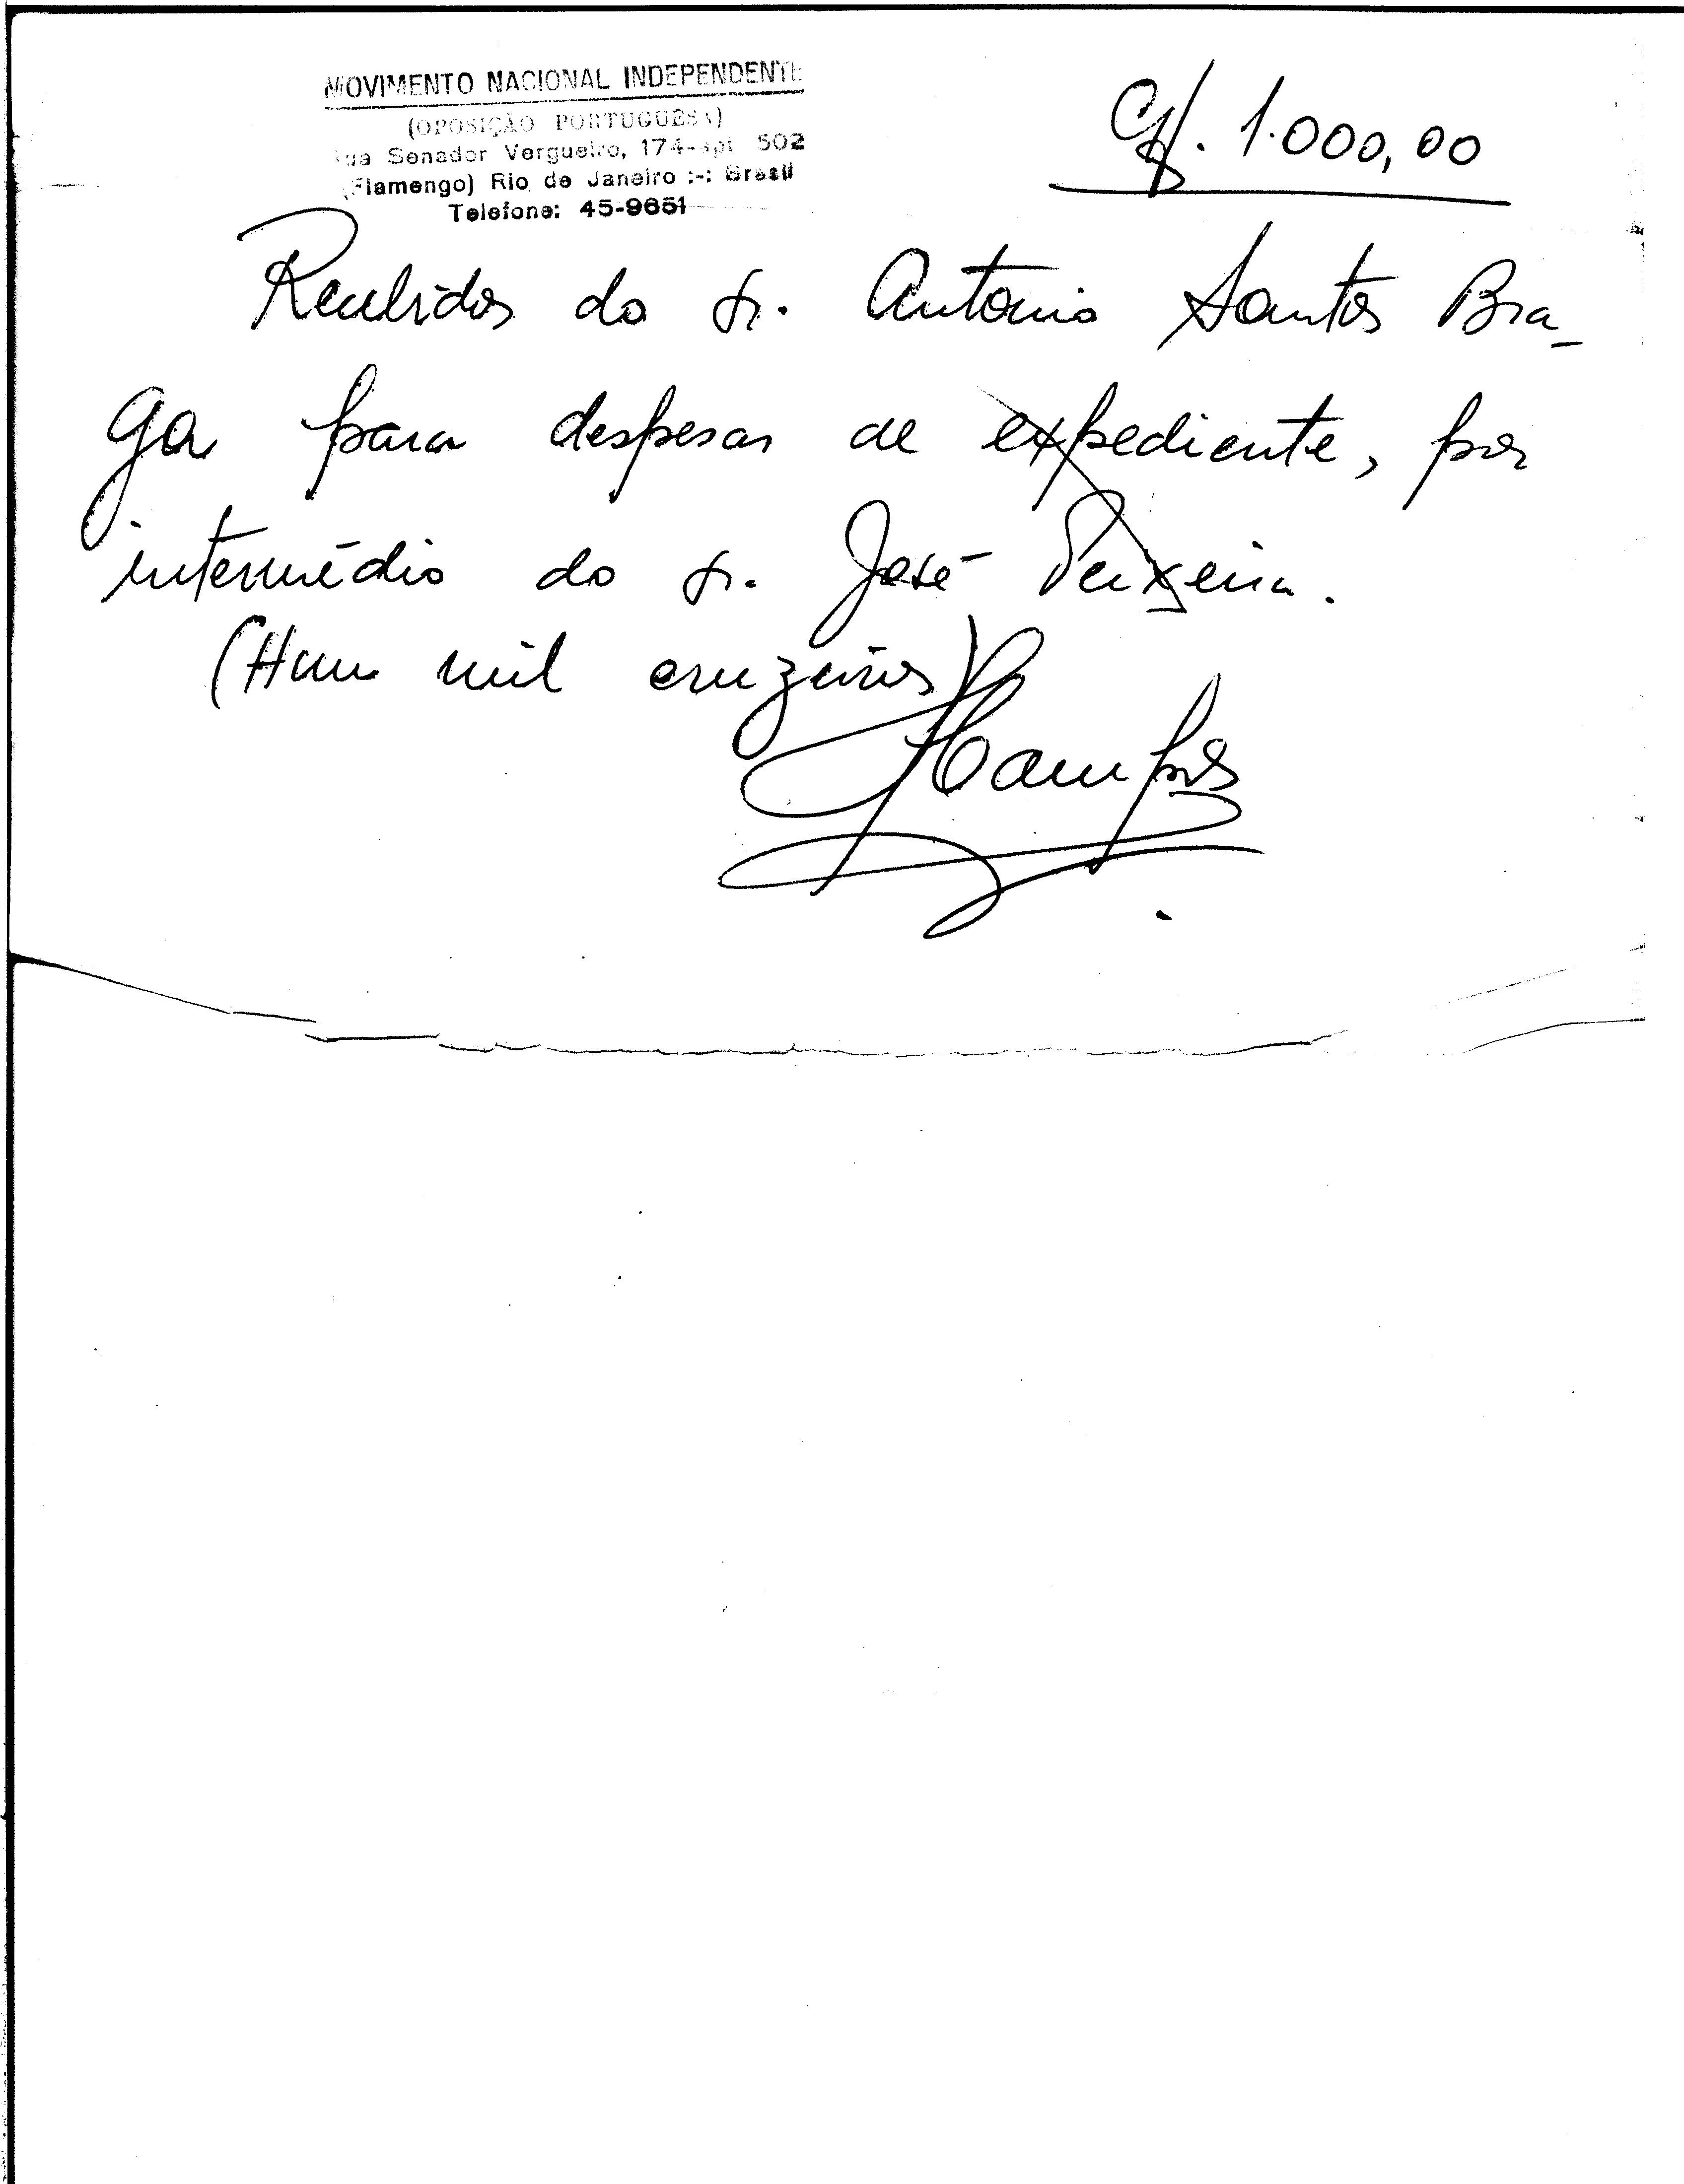 MOVIMENTO NACIONAL INDEPENDENTE
(OPOSIÇÃO PORTUGUÊSA)
Rua Senador Vergueiro, 174-apt 502
(Flamengo) Rio de Janeiro :-: Brasil
Telefone: 45-9651
Cr$. 1.000,00
Recebidos do sr. Antonio Santos Bra-
ga para despesas de expediente, por
intermédio do sr. José Teixeira.
(Hum mil cruzeiros)